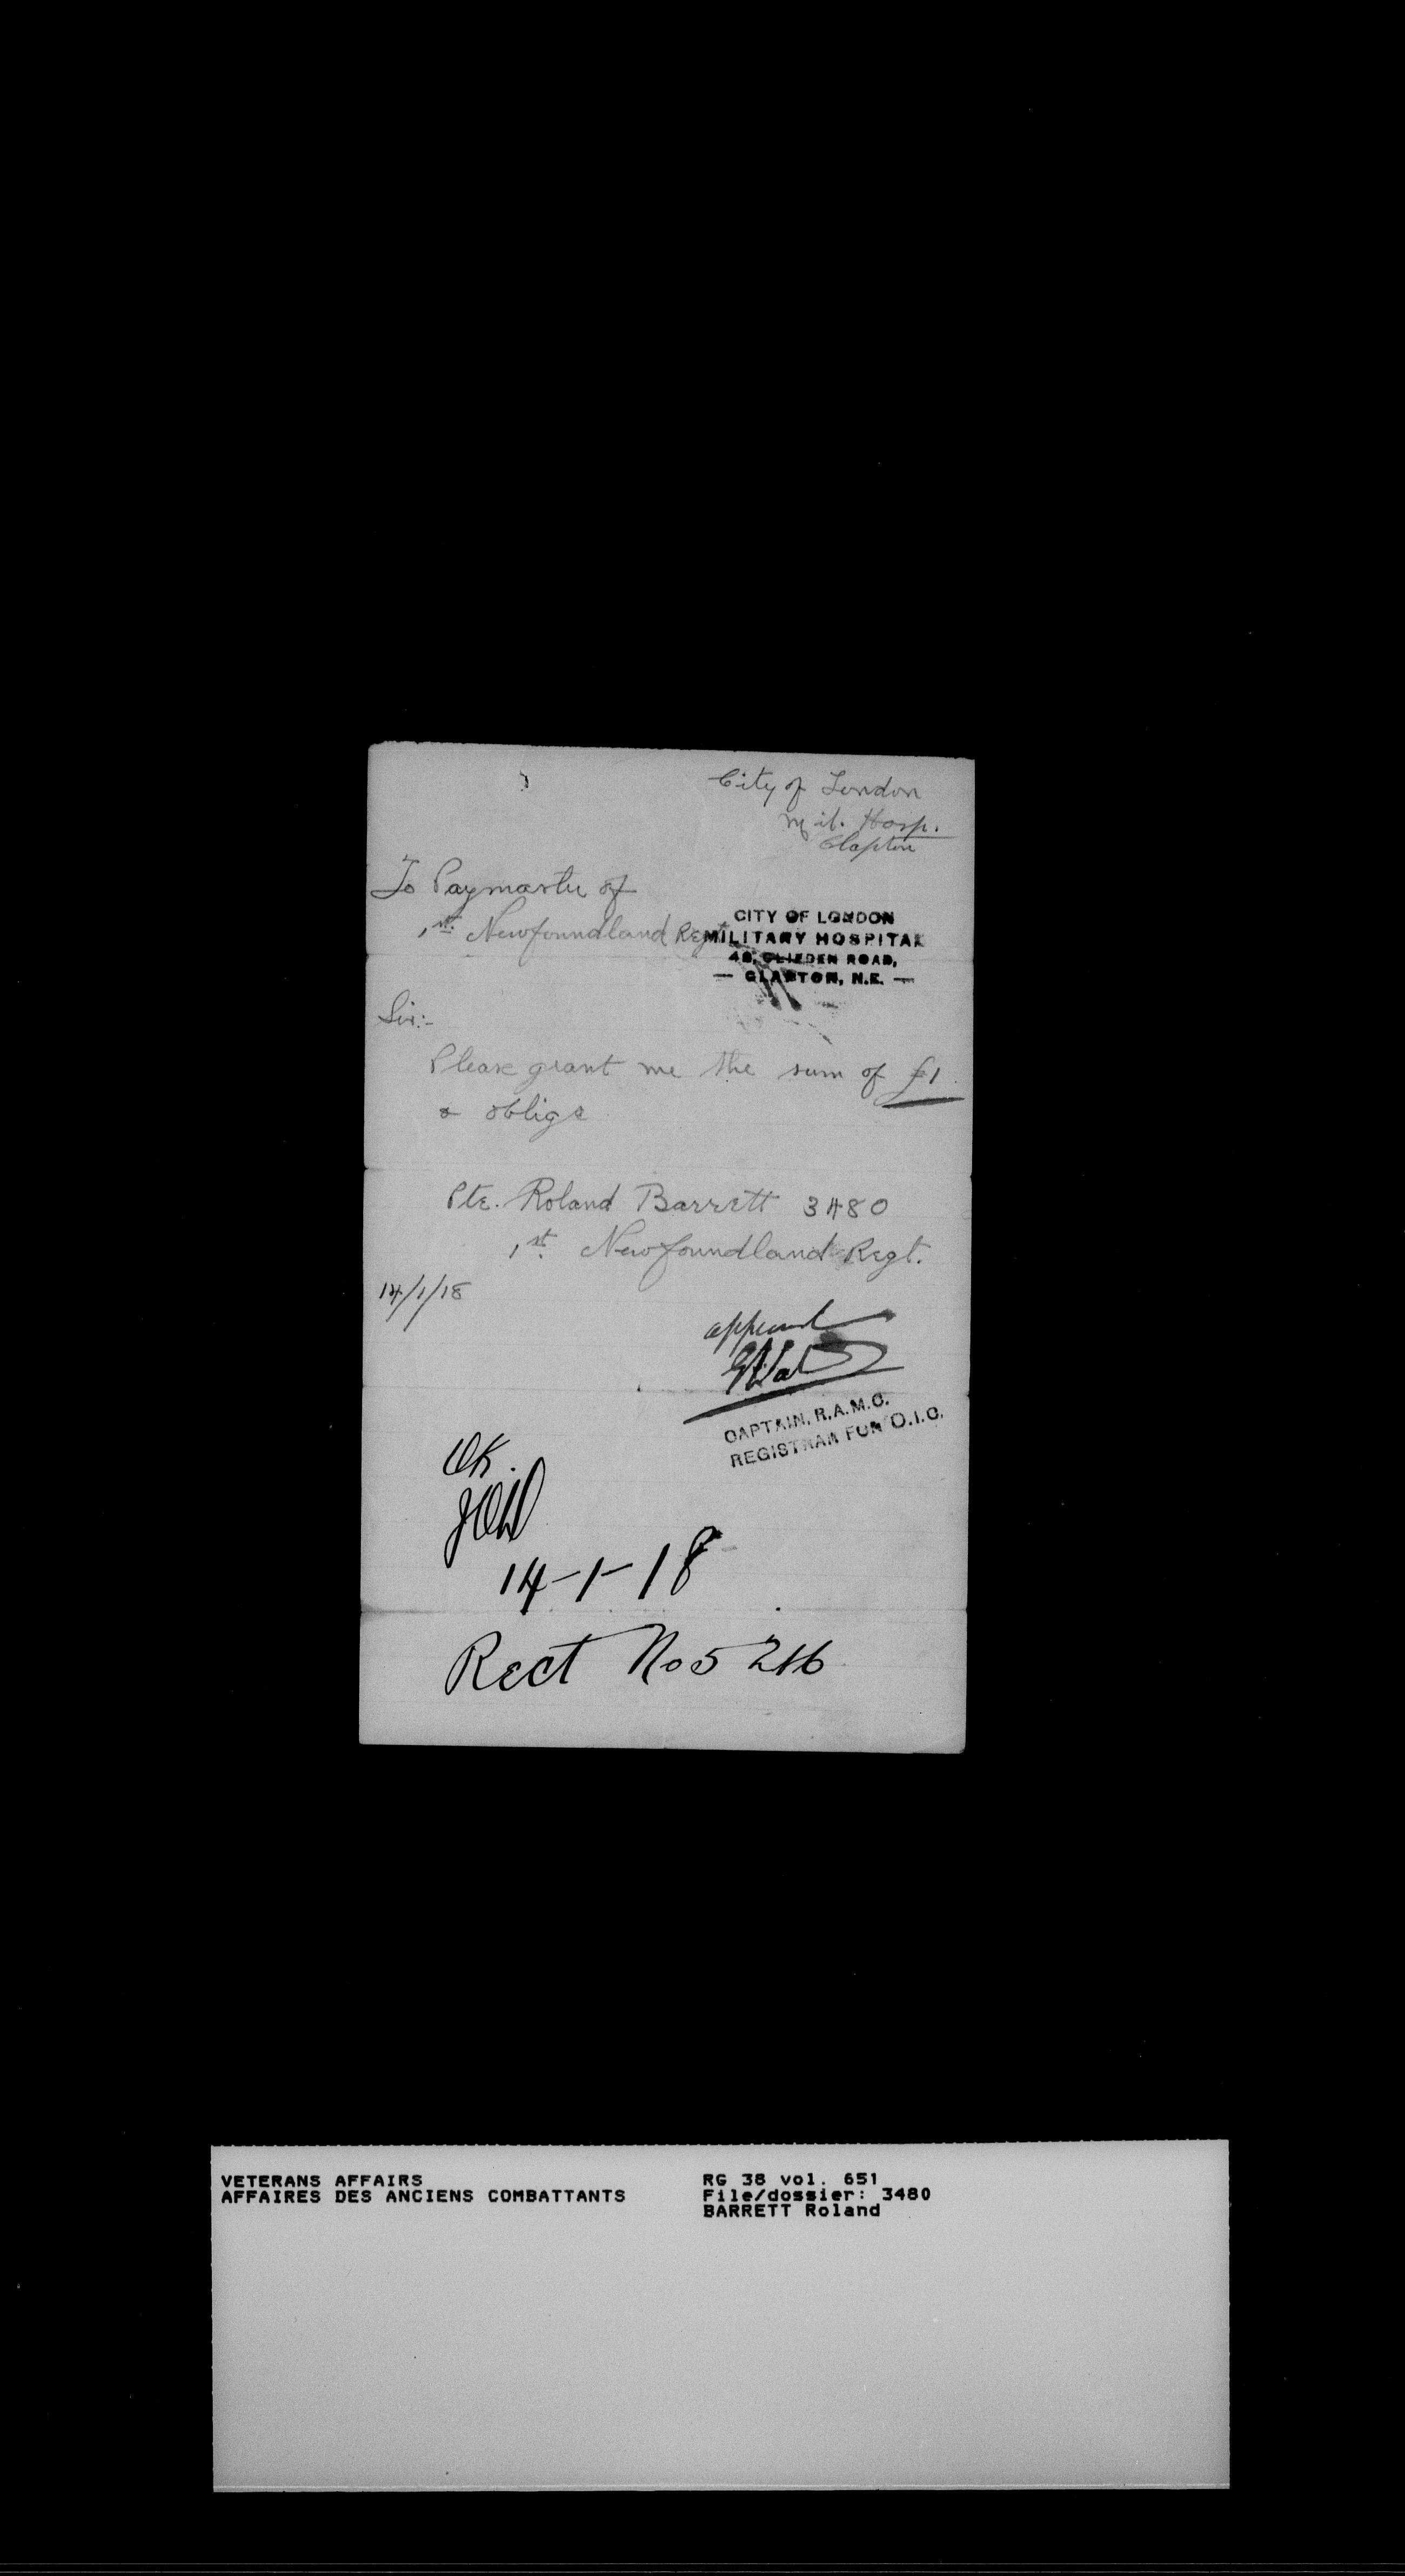 City of London
Mil. Hosp.
Clapton
To Paymaster of
1st. Newfoundland Regt
CITY OF LONDON
MILITARY HOSPITAL
48, CLIFDEN ROAD,
— CLAPTON, N.E. —
Sir:-
Please grant me the sum of £1
& oblige
Pte. Roland Barrett 3480
1st. Newfoundland Regt.
14/1/18
approved
CAPTAIN, R.A.M.C.
REGISTRAR FOR O.I.C.
OK.
14-1-18
Rect No 5246
VETERANS AFFAIRS
AFFAIRES DES ANCIENS COMBATTANTS
RG 38 vol. 651
File/dossier: 3480
BARRETT Roland